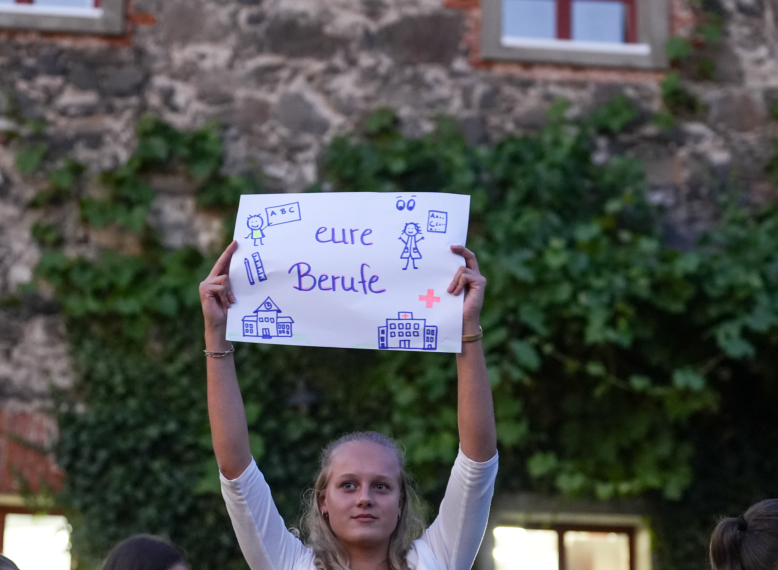 A B C
eure
Berufe